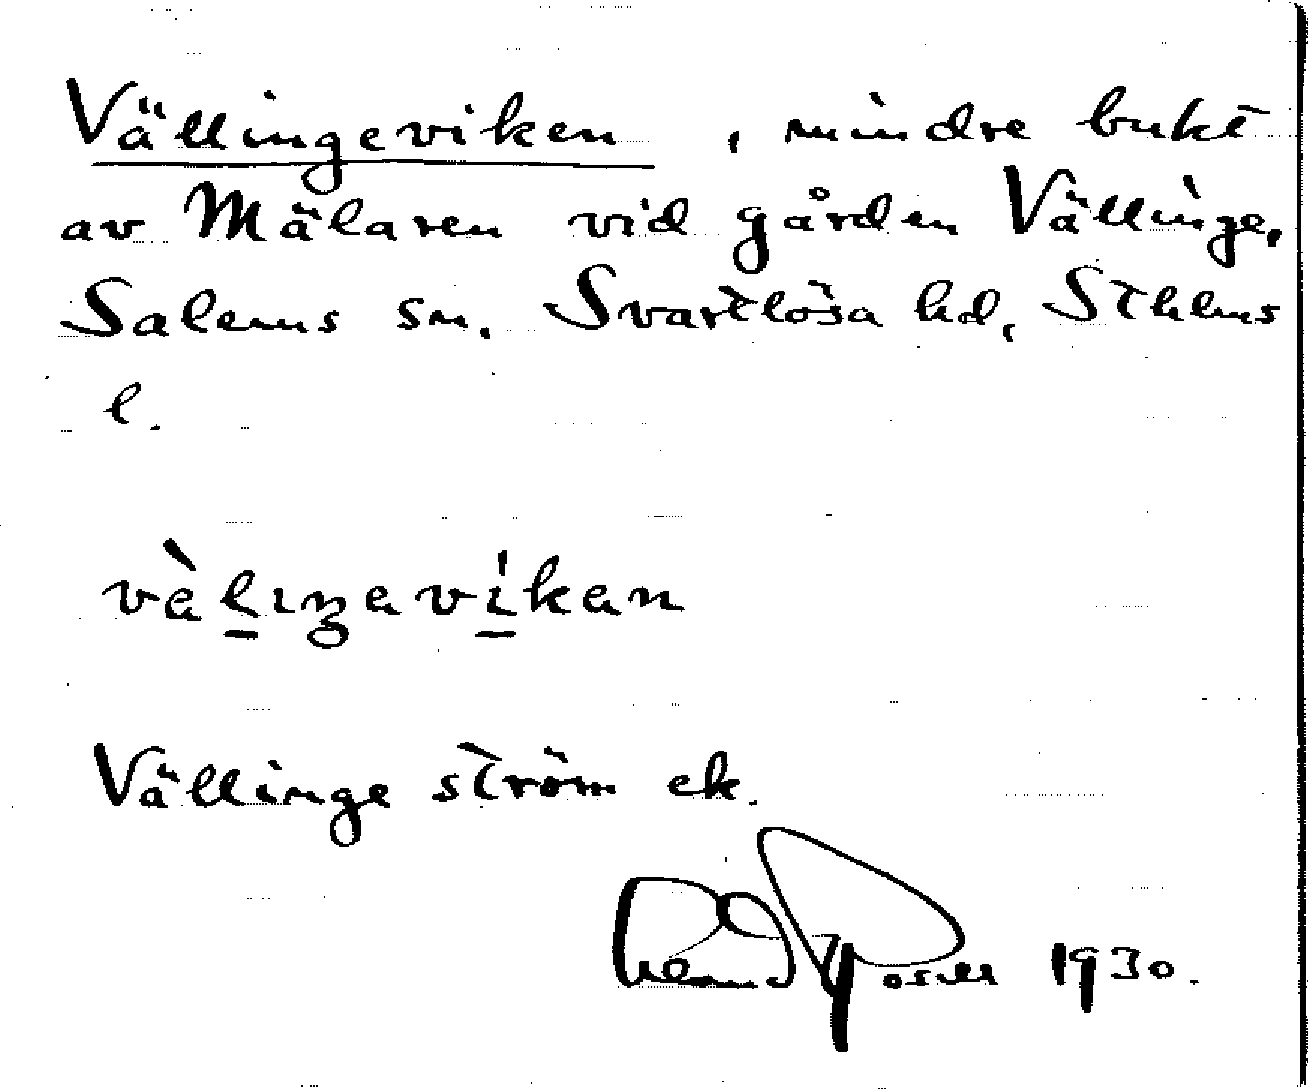 Vällingeviken, mindre bukt
av Mälaren vid gården Vällinge,
Salems sn, Svartlösa hd, Sthlms
l.
vàl̲ıŋavi̲kan
Vällinge ström ek.
1930.